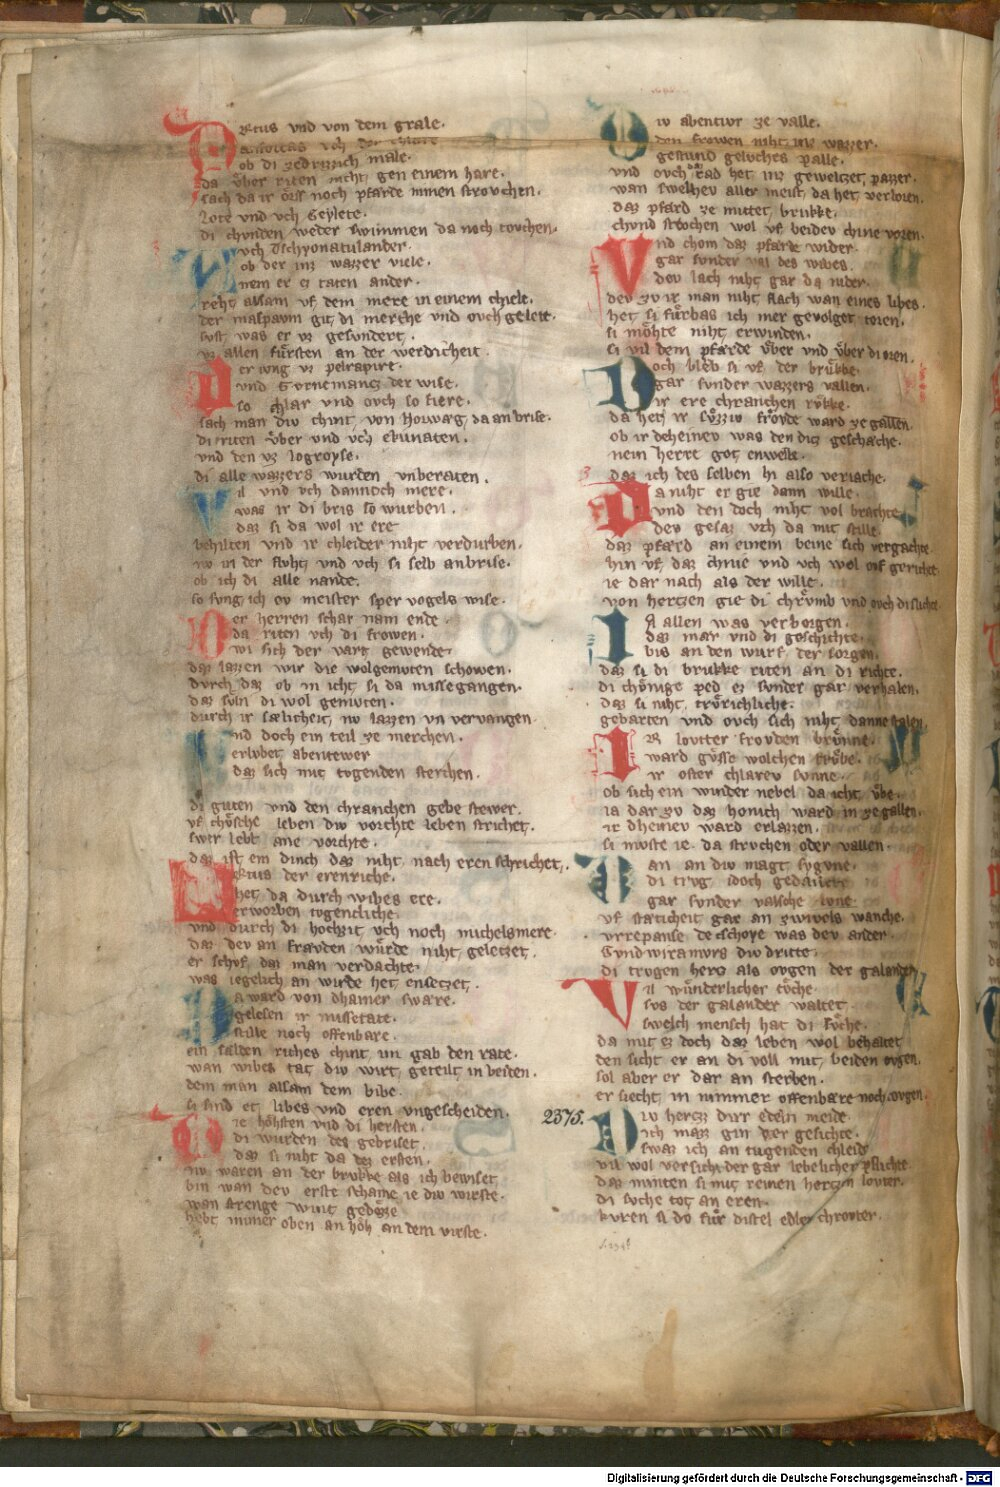 Artus vnd von dem grale.
anfortas vch der chlare
ob di zedrizzich male.
da vber riten nicht, gen einem hare.
sach da ir orss noch pfarde ninen strovchen.
Lote vnd vch Geylete.
di chvnden weder swimmen da noch tovchen.
vch Tschyonatulander.
ob der inz wazzer viele.
nem er ez raten ander.
reht alsam vf dem mere in einem chiele.
der maspavm git, di merche vnd ovch gelete.
svst was er vz gesvndert,
vz allen fürsten an der werdicheit.
Der ivng vz pelrapire.
vnd Gvrnemancz der wise.
so chlar vnd ovch so fiere.
sach man div chint, von kovarz, da an brise.
di riten vber vnd vch ekunaten.
vnd den vz logroyse.
di alle wazzers wurden vnberaten.
Vil vnd vch dannoch mere.
was ir di bris so wurben.
daz si da wol ir ere
behilten vnd ir chleider niht verdurben.
nv in der flvht, vnd vch si selb an brise.
ob ich di alle nande.
so svng ich ev meister sper vogels wise.
Der herren schar nam ende.
da riten vch di frowen.
wi sich der vart gewende.
daz lazzen wir die wolgemvten schowen.
dvrch daz ob in icht, si da missegangen.
daz svln di wol gemvten.
dvrch ir sælicheit, nv lazzen vn vervangen.
Vnd doch ein teil ze merchen.
erlvbet, abentewer
daz sich mit togenden sterchen.
di guten vnd den chranchen gebe stewer.
vf chvsche leben div vorchte leben strichet.
swer lebt ane vorchte.
daz ist ein dinch daz niht, nach eren schrichet.
Artus der erenriche.
het, da durch wibes ere.
erworben togentliche.
vnd durch di hochzit vch noch michels mere.
daz dev an fravden würde niht, geletzet.
er schvf, daz man verdachte.
was iegelich an wirde het, ensetzet.
Da ward von dhainer swære.
gelesen ir missetate.
stille noch offenbare.
ein sælden riches chint, im gab den rate.
wan wibes tat, div wirt, geteilt, in beiden.
dem man alsam dem bibe.
si sind et, libes vnd eren vngescheiden.
Die höhsten vnd di hersten.
di wurden des gebriset.
daz si niht da dez ersten.
nv waren an der brvkke als ich bewiset
bin wan dev erste schame ie div wirste.
wan strenge wint gedöze
hebt immer oben an höh an dem virste.
Div abentivr ze valle.
den frowen niht, inz wazzer.
gestund geliches palle.
vnd ovch daz rad het inz geweltzet, pazzer.
wan swelhev aller meist, da het, verloren.
daz pfard ze mittet, brukke.
chvnd strochen wol vf beidev chnie voren.
Vnd chom daz pfarde wider.
gar svnder val des wibes.
dev lach niht gar da nider.
dev zv ir man niht, slach wan eines libes.
het si fürbas ich mer gevolget toren.
si möhte niht, erwinden.
si vil dem pfærde vber vnd vber di oren.
Doch bleb si vf der brükke.
gar svnder wazzers vallen.
ir ere chranchen rükke.
da het, ir süzziv fröwde ward ze gallen.
ob ir deheinev was den diz geschache.
nein herre got enwelle.
daz ich des selben hi also veriache.
Da niht er gie dann wille.
vnd den doch niht vol brachte.
dev gesaz vch da mit stille.
daz pfard an einem beine sich vergachte.
hin vf, daz chnie vnd vch wol vf gerichte.
ie dar nach als der wille.
von hertzen gie di chrvmb vnd ovch di slicht
In allen was verborgen.
daz mær vnd di geschichte.
bis an den wurf, der sorgen.
daz si di brukke riten an di richte.
di chönige ped ez svnder gar verhalen.
daz si niht, trörichliche.
gebarten vnd ovch sich niht, danne stalen.
Ir lovtter frovden brünne.
ward güsse wolchen trübe.
ir oster chlarev svnne.
ob sich ein winder nebel da icht, übe.
ia dar zv daz honich ward in ze gallen.
ir dheinev ward erlazzen.
si mvste ie da strvchen oder vallen.
Wan an div magt sygvne.
di trvg idoch gedanche
gar svnder valsche lvne
vf stæticheit gar an zwivels wanche.
vrrepanse de tschoye was dev ander.
Gvndwiramvrs div dritte.
di trvgen herz als ovgen der galander.
Vil wünderlicher tüche.
svs der galander waltet
swelch mensch hat di süche.
da mit ez doch daz leben wol behaltet
den siht er an di voll mit, beiden ovgen.
sol aber er dar an sterben.
er siecht, in nimmer offenbære noch tovgen.
2375.
Div hercz dirr edeln meide.
ich maz gin der gesichte.
swaz ich an tugenden chleid
vil wol versicht, der gar lebelicher pflichte.
daz minten si mit reinen hertzen lovter.
di svche tot an eren.
kvren si do für distel edlev chrovter.